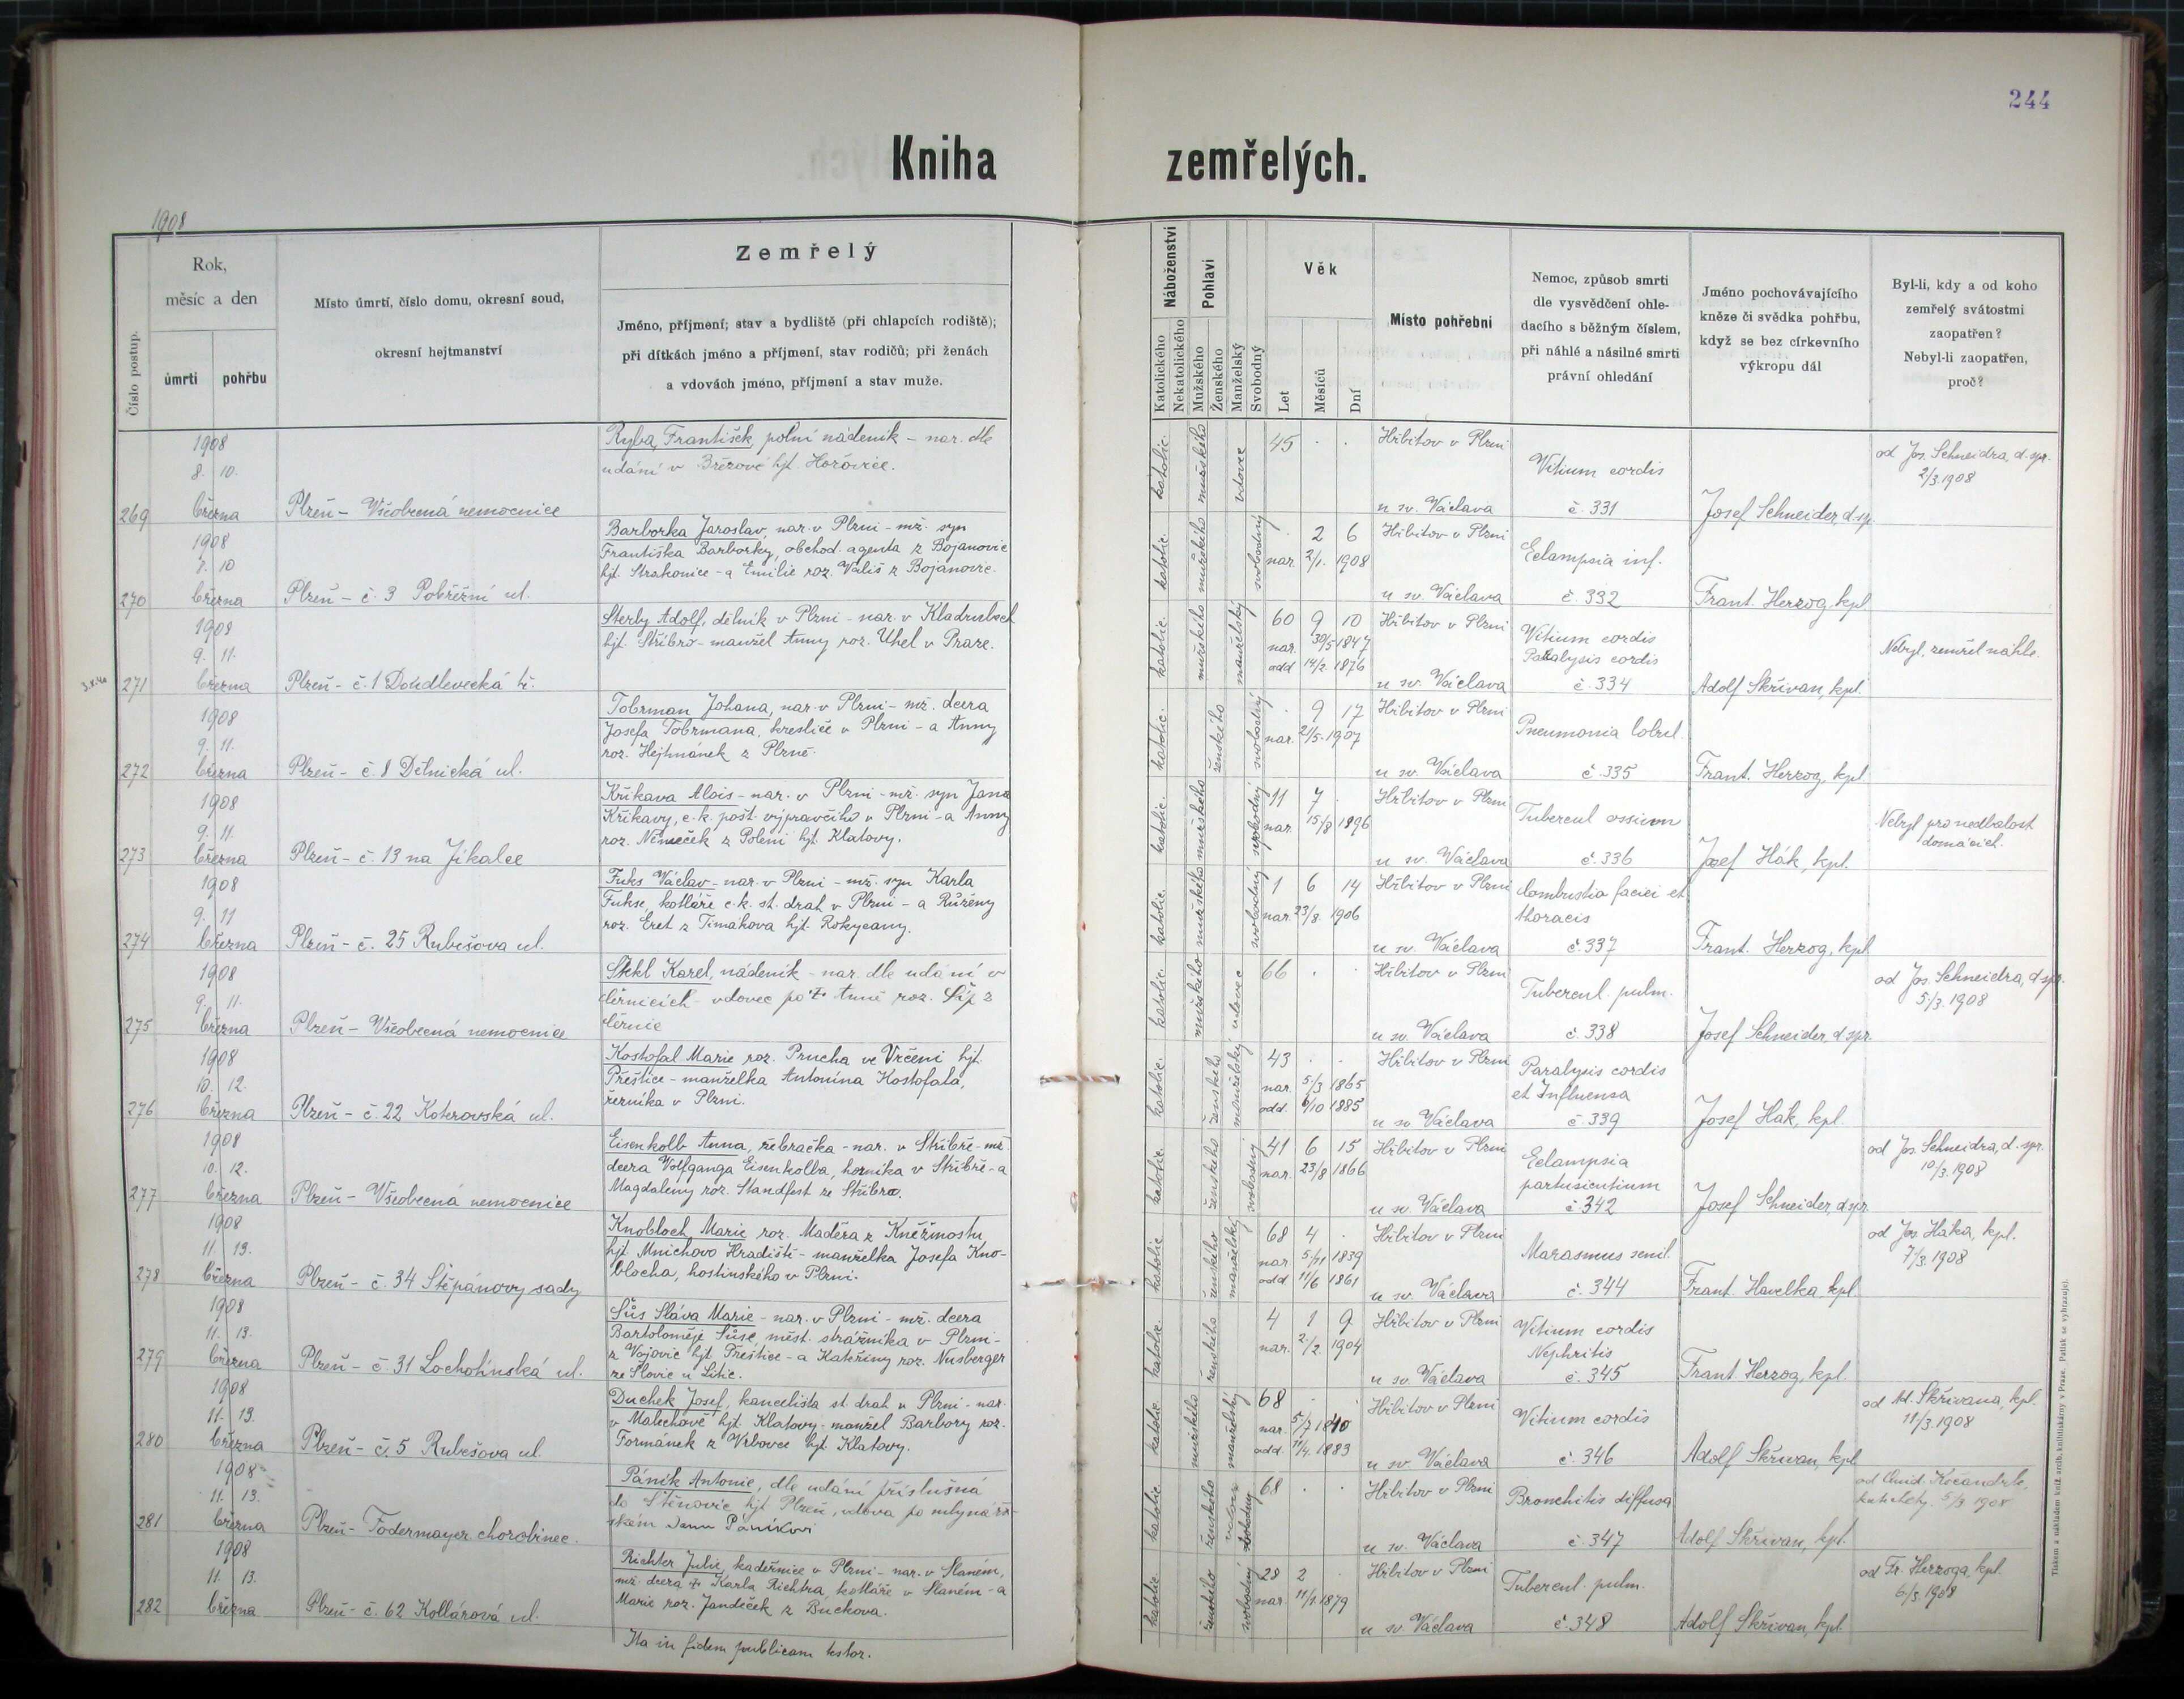 244
Kniha zemřelých.
1908
Číslo postup.
Rok,
měsíc a den
úmrtí
pohřbu
Místo úmrtí, číslo domu, okresní soud,
okresní hejtmanství
Zemřelý
Jméno, příjmení; stav a bydliště (při chlapcích rodiště);
při dítkách jméno a příjmení, stav rodičů; při ženách
a vdovách jméno, příjmení a stav muže.
Náboženství
Katolického
Nekatolického
Pohlaví
Mužského
Ženského
Manželský
Svobodný
Věk
Let
Měsíců
Dní
Místo pohřební
Nemoc, způsob smrti
dle vysvědčení ohle-
dacího s běžným číslem,
při náhlé a násilné smrti
právní ohledání
Jméno pochovávajícího
kněze či svědka pohřbu,
když se bez církevního
výkropu dál
Byl-li, kdy a od koho
zemřelý svátostmi
zaopatřen?
Nebyl-li zaopatřen,
proč?
269
1908
8. 10.
března
Plzeň - Všeobecná nemocnice
Ryba, František, polní nádeník - nar. dle
udání v Březové hjt. Hořovice.
katolic.
mužského
vdovec
45 . .
Hřbitov v Plzni
u sv. Václava
Vitium cordis
č. 331
Josef Schneider, d. sp.
od Jos. Schneidra, d. spr.
2/3.1908
270
1908
8. 10
března
Plzeň - č. 3 Pobřežní ul.
Barborka Jaroslav, nar. v Plzni - mž. syn
Františka Barborky, obchod. agenta z Bojanovic
hjt. Strakonice - a Emilie roz. Vališ z Bojanovic.
katolic.
mužského
svobodný
. 2 6
nar. 2/1. 1908
Hřbitov v Plzni
u sv. Václava
Eclampsia inf.
č. 332
Frant. Herzog, kpl
271
1908
9. 11.
března
Plzeň - č. 1 Doudlevecká tř.
Sterby Adolf, dělník v Plzni - nar. v Kladrubech
hjt. Stříbro - manžel Anny roz. Uhel v Praze.
katolic.
mužského
manželský
60 9 10
nar. 30/5 1847
odd 14/2. 1876
Hřbitov v Plzni
u sv. Václava
Vitium cordis
Paralysis cordis
č. 334
Adolf Skřivan, kpl.
Nebyl, zemřel náhle.
272
1908
9. 11.
března
Plzeň - č. 8 Dělnická ul.
Tobrman Johana, nar. v Plzni - mž. dcera
Josefa Tobrmana, kresliče v Plzni - a Anny
roz. Hejtmánek z Plzně.
katolic.
ženského
svobodný
. 9 17
nar. 21/5. 1907
Hřbitov v Plzni
u sv. Václava
Pneumonia lobul.
č. 335
Frant. Herzog, kpl.
273
1908
9. 11.
března
Plzeň - č. 13 na Jíkalce
Křikava Alois - nar. v Plzni - mž. syn Jana
Křikavy, c. k. pošt. výpravčího v Plzni - a Anny
roz. Němeček z Poleni hjt. Klatovy.
katolic.
mužského
svobodný
11 7 .
nar. 15/8 1896
Hřbitov v Plzni
u sv. Václava
Tubercul ossium
č. 336
Josef Hák, kpl.
Nebyl pro nedbalost
domácích.
274
1908
9. 11
března
Plzeň - č. 25 Rubešova ul.
Fuks Václav - nar. v Plzni - mž. syn Karla
Fukse, kotláře c. k. st. drah v Plzni - a Růženy
roz. Eret z Timakova hjt. Rokycany.
katolic.
mužského
svobodný
1 6 14
nar. 23/8. 1906
Hřbitov v Plzni
u sv. Václava
Combustio faciei et
thoracis
č. 337
Frant. Herzog, kpl.
275
1908
9. 11.
března
Plzeň - Všeobecná nemocnice
Karel, nádeník - nar. dle udání v
Černicích - vdovec po † Anně roz. Síp z
Černic
katolic.
mužského
vdovec
66 . .
Hřbitov v Plzni
u sv. Václava
Tubercul. pulm.
č. 338
Josef Schneider, d spr.
od Jos. Schneidra, d spr.
5./3. 1908
276
1908
10. 12.
března
Plzeň - č. 22 Koterovská ul.
Kostofal Marie roz. Prucha ve Vrčeni hjt.
Přeštice - manželka Antonína Kostofala,
řezníka v Plzni.
katolic.
ženského
manželský
43 . .
nar. 5./3 1865
odd. 6/10 1885
Hřbitov v Plzni
u sv. Václava
Paralysis cordis
et Influensa
č. 339
Josef Hák, kpl.
277
1908
10. 12.
března
Plzeň - Všeobecná nemocnice
Eisenkolb Anna, žebračka - nar. v Stříbře - mž.
dcera Wolfganga Eisenkolba, horníka v Stříbře - a
Magdaleny roz. Standfest ze Stříbra.
katolic.
ženského
svobodný
41 6 15
nar. 23/8 1866
Hřbitov v Plzni
u sv. Václava
Eclampsia
parturientium
č. 342
Josef Schneider, d spr.
od Jos. Schneidra, d. spr.
10/3. 1908
278
1908
11. 13.
března
Plzeň - č. 34 Štěpánovy sady
Knobloch Marie roz. Maděra z Kněžmostu
hjt. Mnichovo Hradiště - manželka Josefa Kno-
blocha, hostinského v Plzni.
katolic
ženského
manželský
68 4 .
nar 5/11 1839
odd 11/6 1861
Hřbitov v Plzni
u sv. Václava
Marasmus senil.
č. 344
Frant. Havelka, kpl.
od Jos. Háka, kpl.
7/3. 1908
279
1908
11. 13.
března
Plzeň - č. 31 Lochotínská ul.
Sůs Sláva Marie - nar. v Plzni - mž. dcera
Bartoloměje Sůse měst. strážníka v Plzni -
z Vojovic hjt. Přeštice - a Kateřiny roz. Nusberger
ze Šlovic u Litic.
katolic.
ženského
4 1 9
nar. 2./2. 1904
Hřbitov v Plzni
u sv. Václava
Vitium cordis
Nephritis
č. 345
Frant Herzog, kpl.
280
1908
11. 13.
března
Plzeň - č. 5 Rubešova ul.
Duchek Josef, kancelista st. drah v Plzni - nar.
v Malechově hjt. Klatovy - manžel Barbory roz.
Formánek z Vrbovce hjt. Klatovy.
katolic
mužského
manželský
68 . .
nar. 5/7 1840
odd. 11/4. 1883
Hřbitov v Plzni
u sv. Václava
Vitium cordis
č. 346
Adolf Skřivan, kpl
od Ad. Skřivana, kpl.
11/3. 1908
281
1908
11. 13.
března
Plzeň - Todermayer. chorobinec.
Páník Antonie, dle udání příslušná
do Štěnovic hjt Plzeň, vdova po mlynář-
ském Janu Páníkovi
katolic
ženského
vdova
68 . .
Hřbitov v Plzni
u sv. Václava
Bronchitis diffusa
č. 347
Adolf Skřivan, kpl.
katechety. 5/3 1908
282
1908
11. 13.
března
Plzeň - č. 62 Kollárová ul.
Richter Julie, kadeřnice v Plzni - nar. v Slaném,
mž. dcera † Karla Richtra, kotláře v Slaném - a
Marie roz. Jandeček z Búckova.
katolic
ženského
svobodný
28 2 .
nar. 11/1. 1879
Hřbitov v Plzni
u sv. Václava
Tubercul. pulm.
č. 348
Adolf Skřivan, kpl.
od Fr. Herzoga, kpl.
6./3. 1908
Ita in fidem publicam testor.
Tiskem a nákladem kníž. arcib. knihtiskárny v Praze. Patisk se vyhrazuje.